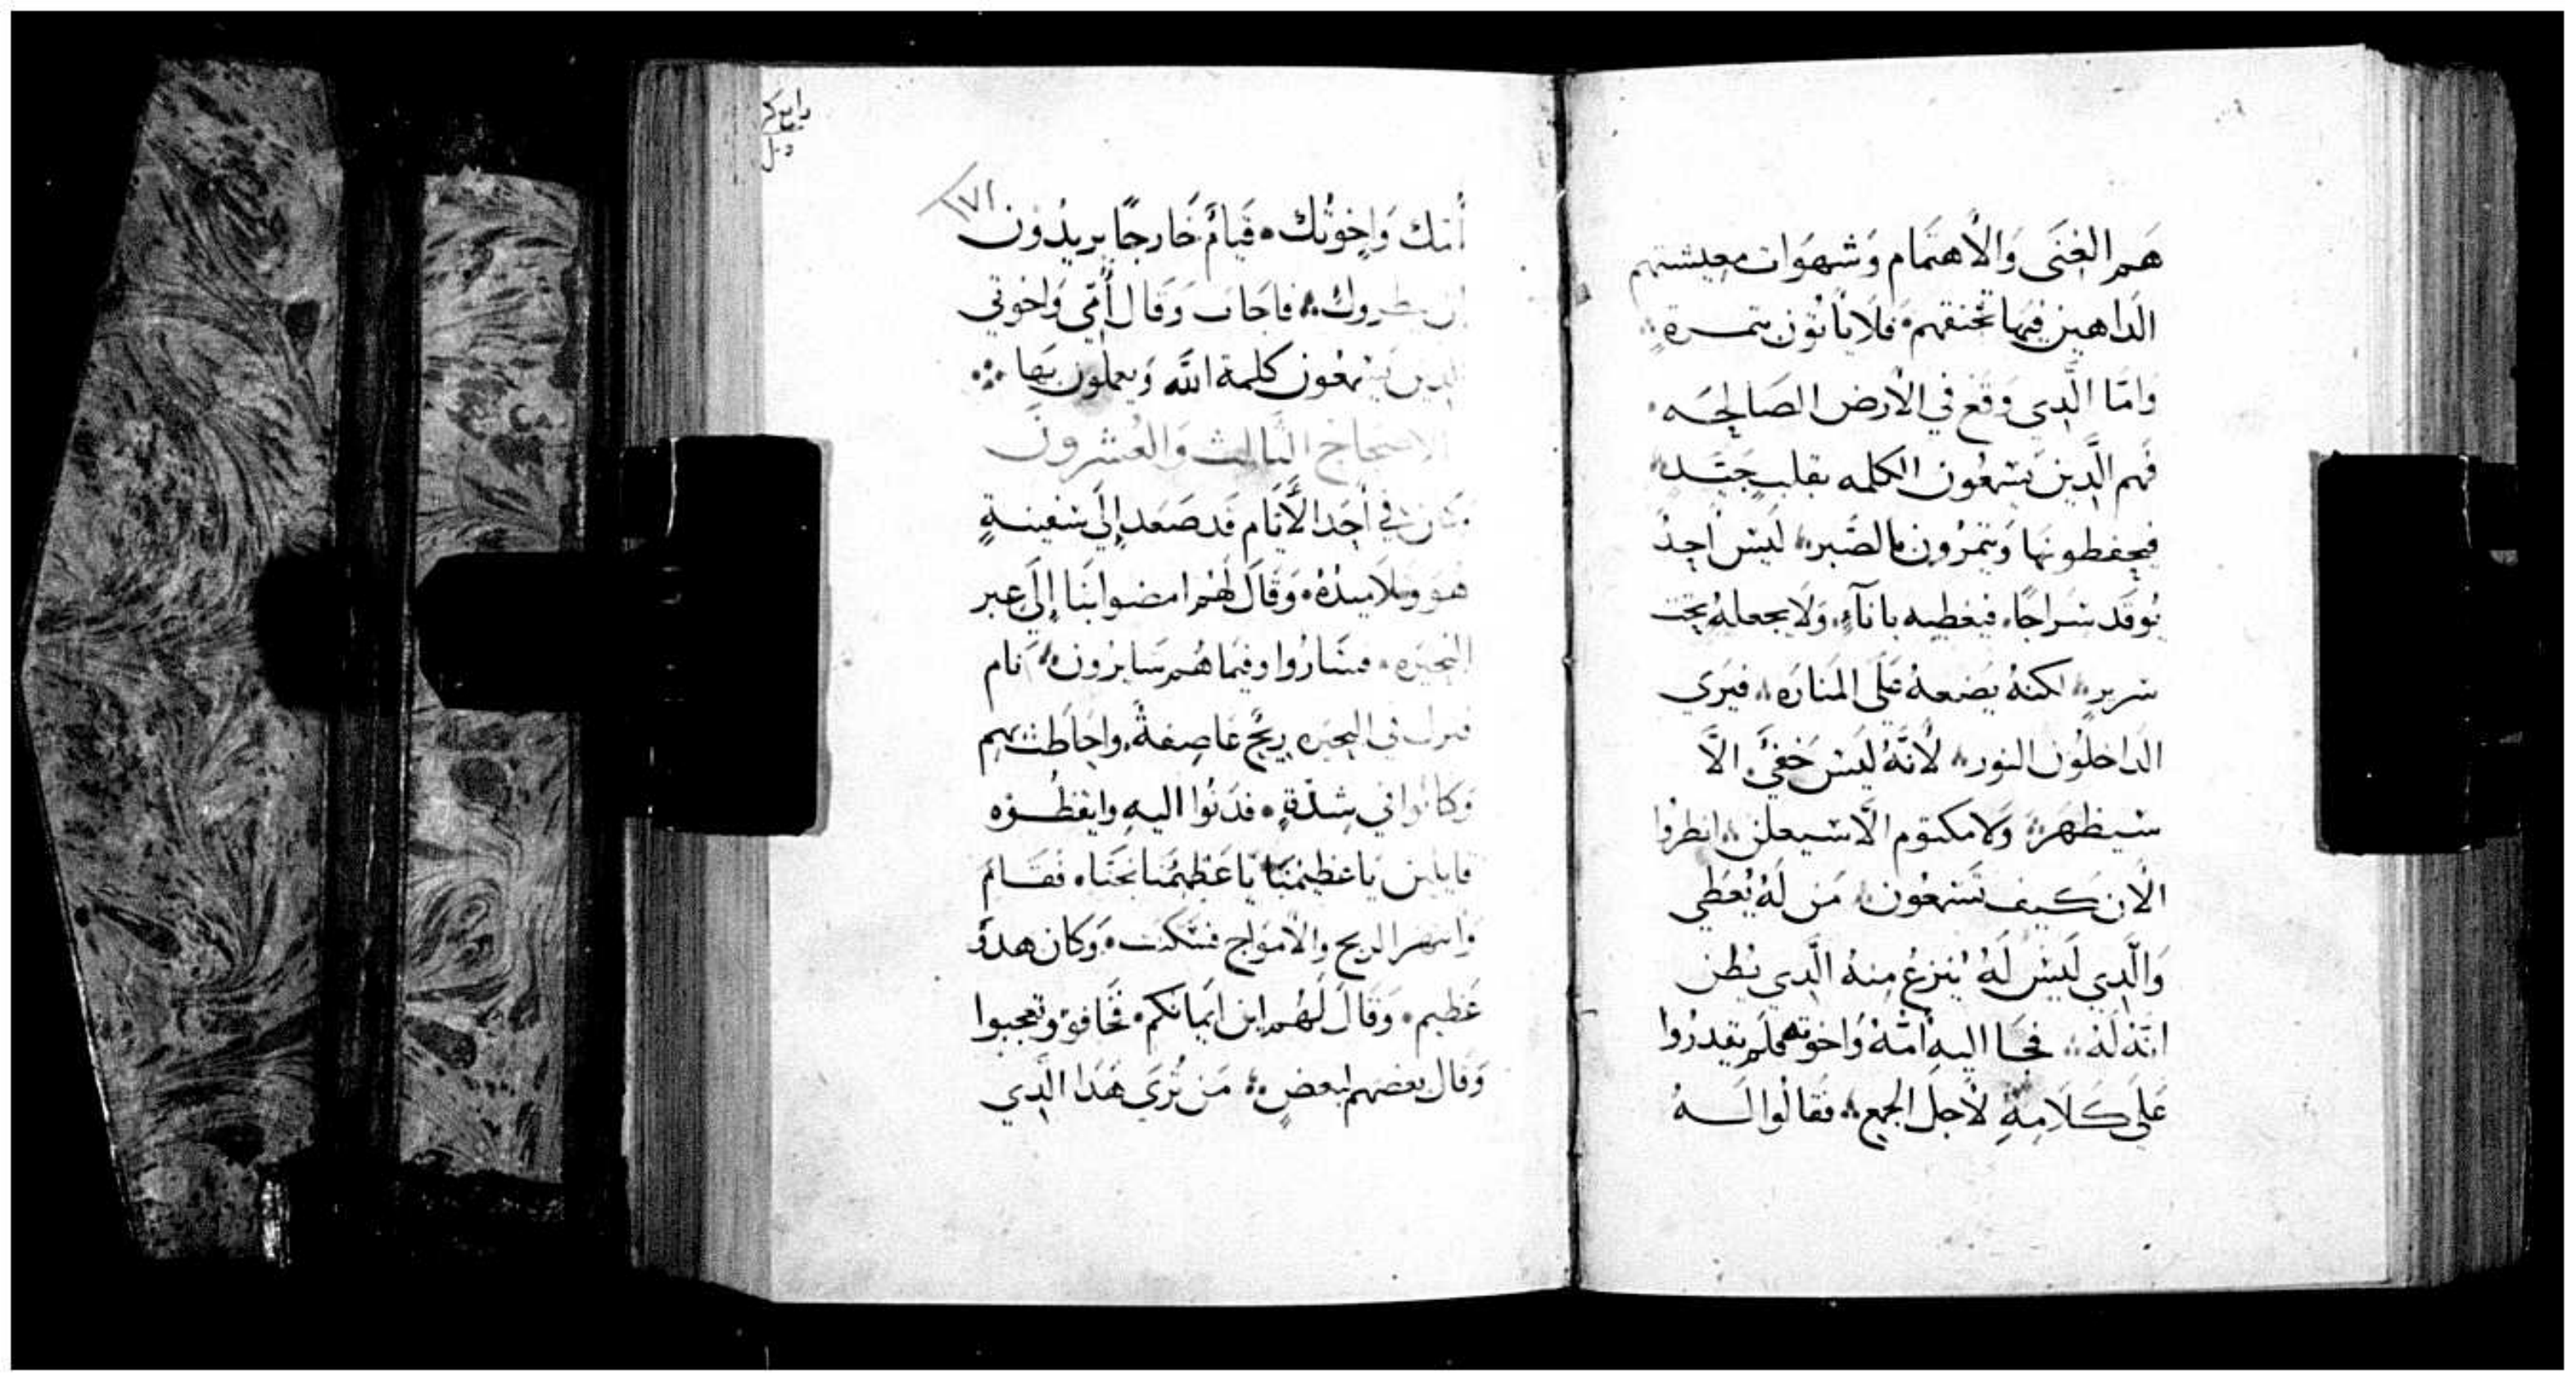 هَم الغِنَى وَالأهتمَام وَشهوَات معيشتهم
الداهبين فيها تخنقهم فَلَا يَاتون بتمـرةٍ
وَامّا الَّدِي وَقَع في الأرض الصَالحَه
فَهم الَّدِين يَسْمعُون الكلمه بقلبٍ جَيَّـد
فيحفظونها وَيتمرُون بالصَّبر ليَسْ احدٌ
يُوقد سَراجًا فيغطيه باناآءٍ وَلَا يجعلهُ تحت
سَريرٍ لكنهُ يضعهُ عَلَى المَنَارَه فيَرَي
الداخلُون النور لأنَّهُ ليَسْ خَفيّ الَّا
سَيظهَر وَلَا مكتوم الَّا سَيعلن انظرُوا
الأن كيف تسَمعُون مَن لَهُ يُعَطي
وَالَّدِي لَيسْ لَهُ يُنزعُ مِنهُ الَّدِي يُظن
انّهُ لَهُ فجَـا اليهِ امّهُ وَاخوتهُ فلَم يقدرُوا
عَلَى كَلَامِهِ لأجل الجمع فقالُوا لَـهُ
١٧١
أُمك وَاِخوَتك قيامٌ خَارجًا يريدُون
ان ينظروك فاجَاب وَقَال أُمّي وَاخوتي
الدين يَسْمعُون كلمة اللَّه وَيعملُون بهَا
الاصحاح التَالت وَالعُشرونَ
وكان في أحَد الأيَّام قَد صَعَد إِلَى سَفينـةٍ
هُوَ وَتلاميدُهُ وَقَالَ لهُم امضوا بنَا إِلَى عبر
البُحيَره فسَارُوا وفيمَا هُم سَايرُون نَام
فنزل في البحيَره ريحٌ عَاصِفةٌ واحَاطت بهم
وَكانوا في شدّةٍ فدَنُوا اليهِ وايقظُـوُه
قايلين يَا عَظيمنَا يَا عَظيمُنَا نجّنَا فقَـامَ
وَانتهر الريح والأموَاج فسَكنت وَكان هدوٌ
عَظيم وَقَالَ لَهُم اين ايمَانكم فخَافوُ وتعجبوا
وَقال بعضهم لبعضٍ مَن تُرَي هَدَا الَّدِي